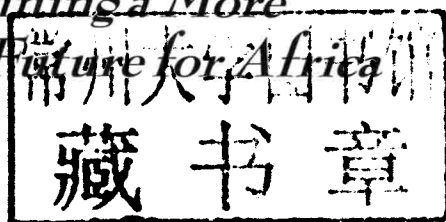 a More
Future for Africa
常州大学图书馆
藏书章